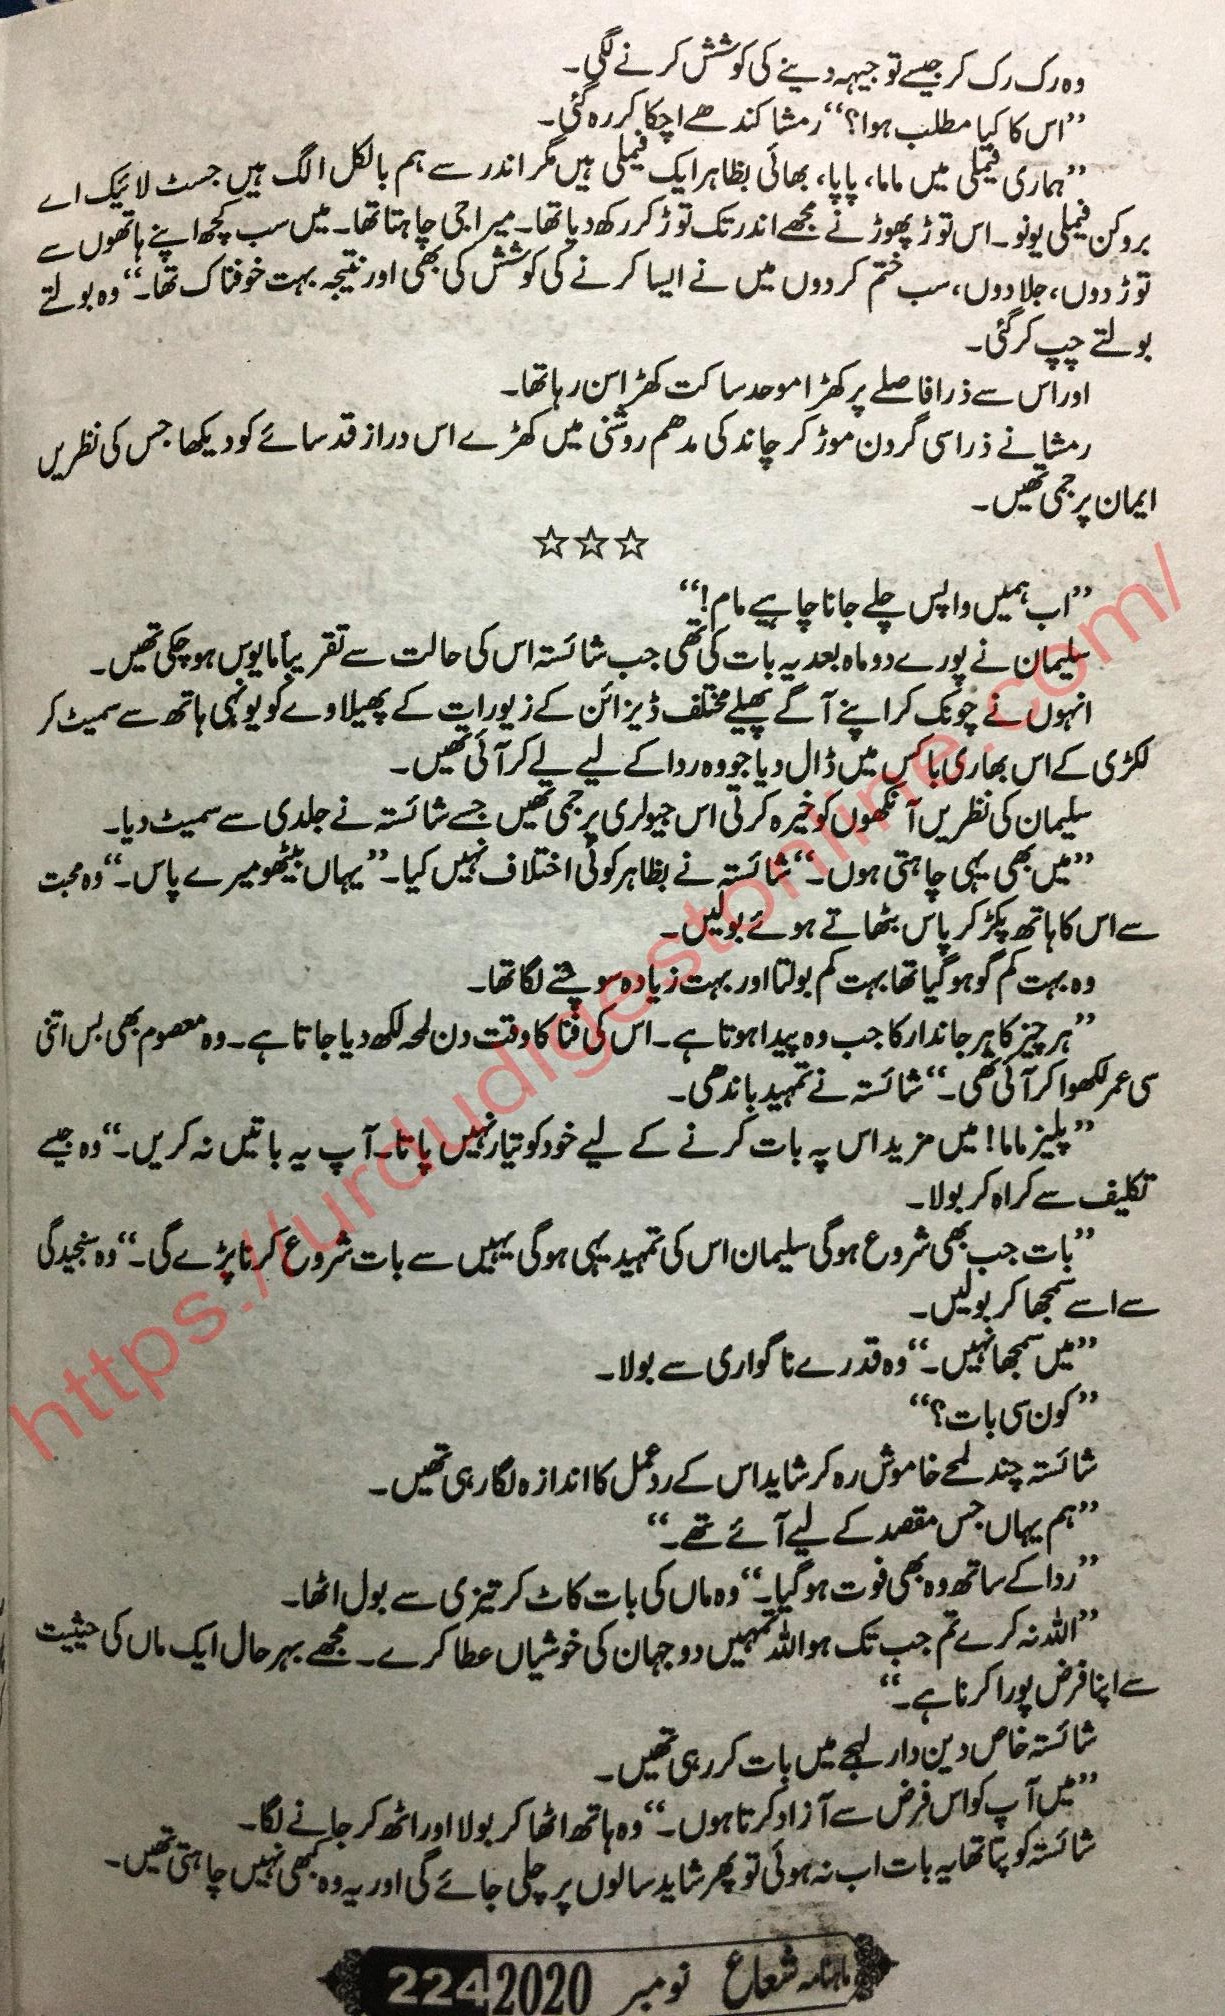 وہ رک رک کر جیسے توجیہہ دینے کی کوشش کرنے لگی۔
”اس کا کیا مطلب ہوا؟“ رمشا کندھے اچکا کر رہ گئی۔
”ہماری فیملی میں ماما، پاپا، بھائی بظاہر ایک فیملی ہیں مگر اندر سے ہم بالکل الگ ہیں جسٹ لائیک اے
بروکن فیملی یونو۔ اس توڑ پھوڑ نے مجھے اندر تک توڑ کر رکھ دیا تھا۔ میرا جی چاہتا تھا۔ میں سب کچھ اپنے ہاتھوں سے
توڑ دوں، جلا دوں، سب ختم کر دوں میں نے ایسا کرنے کی کوشش کی بھی اور نتیجہ بہت خوفناک تھا۔“ وہ بولتے
بولتے چپ کر گئی۔
اور اس سے ذرا فاصلے پر کھڑا موحد ساکت کھڑا سن رہا تھا۔
رمشا نے ذرا سی گردن موڑ کر چاند کی مدھم روشنی میں کھڑے اس دراز قد سائے کو دیکھا جس کی نظریں
ایمان پر جمی تھیں۔
☆☆☆
”اب ہمیں واپس چلے جانا چاہیے مام!“
سلیمان نے پورے دو ماہ بعد یہ بات کی تھی جب شائستہ اس کی حالت سے تقریباً مایوس ہو چکی تھیں۔
انہوں نے چونک کر اپنے آگے پھیلے مختلف ڈیزائن کے زیورات کے پھیلاوے کو یونہی ہاتھ سے سمیٹ کر
لکڑی کے اس بھاری باکس میں ڈال دیا جو وہ ردا کے لیے لے کر آئی تھیں۔
سلیمان کی نظریں آنکھوں کو خیرہ کرتی اس جیولری پر جمی تھیں جسے شائستہ نے جلدی سے سمیٹ دیا۔
”میں بھی یہی چاہتی ہوں۔“ شائستہ نے بظاہر کوئی اختلاف نہیں کیا۔ ”یہاں بیٹھو میرے پاس۔“ وہ محبت
سے اس کا ہاتھ پکڑ کر پاس بٹھاتے ہوئے بولیں۔
وہ بہت کم گو ہو گیا تھا بہت کم بولتا اور بہت زیادہ سوچنے لگا تھا۔
”ہر چیز کا ہر جاندار کا جب وہ پیدا ہوتا ہے۔ اس کی فنا کا وقت دن لمحہ لکھ دیا جاتا ہے۔ وہ معصوم بھی بس اتنی
سی عمر لکھوا کر آئی تھی۔“ شائستہ نے تمہید باندھی۔
”پلیز ماما! میں مزید اس پہ بات کرنے کے لیے خود کو تیار نہیں پاتا۔ آپ یہ باتیں نہ کریں۔“ وہ جیسے
تکلیف سے کراہ کر بولا۔
”بات جب بھی شروع ہوگی سلیمان اس کی تمہید یہی ہوگی یہیں سے بات شروع کرنا پڑے گی۔“ وہ سنجیدگی
سے اسے سمجھا کر بولیں۔
”میں سمجھا نہیں۔“ وہ قدرے ناگواری سے بولا۔
”کون سی بات؟“
شائستہ چند لمحے خاموش رہ کر شاید اس کے ردعمل کا اندازہ لگا رہی تھیں۔
”ہم یہاں جس مقصد کے لیے آئے تھے۔“
”ردا کے ساتھ وہ بھی فوت ہو گیا۔“ وہ ماں کی بات کاٹ کر تیزی سے بول اٹھا۔
”اللہ نہ کرے تم جب تک ہو اللہ تمہیں دو جہان کی خوشیاں عطا کرے۔ مجھے بہرحال ایک ماں کی حیثیت
سے اپنا فرض پورا کرنا ہے۔“
شائستہ خاص دین دار لہجے میں بات کر رہی تھیں۔
”میں آپ کو اس فرض سے آزاد کرتا ہوں۔“ وہ ہاتھ اٹھا کر بولا اور اٹھ کر جانے لگا۔
شائستہ کو پتا تھا یہ بات اب نہ ہوئی تو پھر شاید سالوں پر چلی جائے گی اور یہ وہ کبھی نہیں چاہتی تھیں۔
ماہنامہ شعاع نومبر 2020 224
https://urdudigestonline.com/